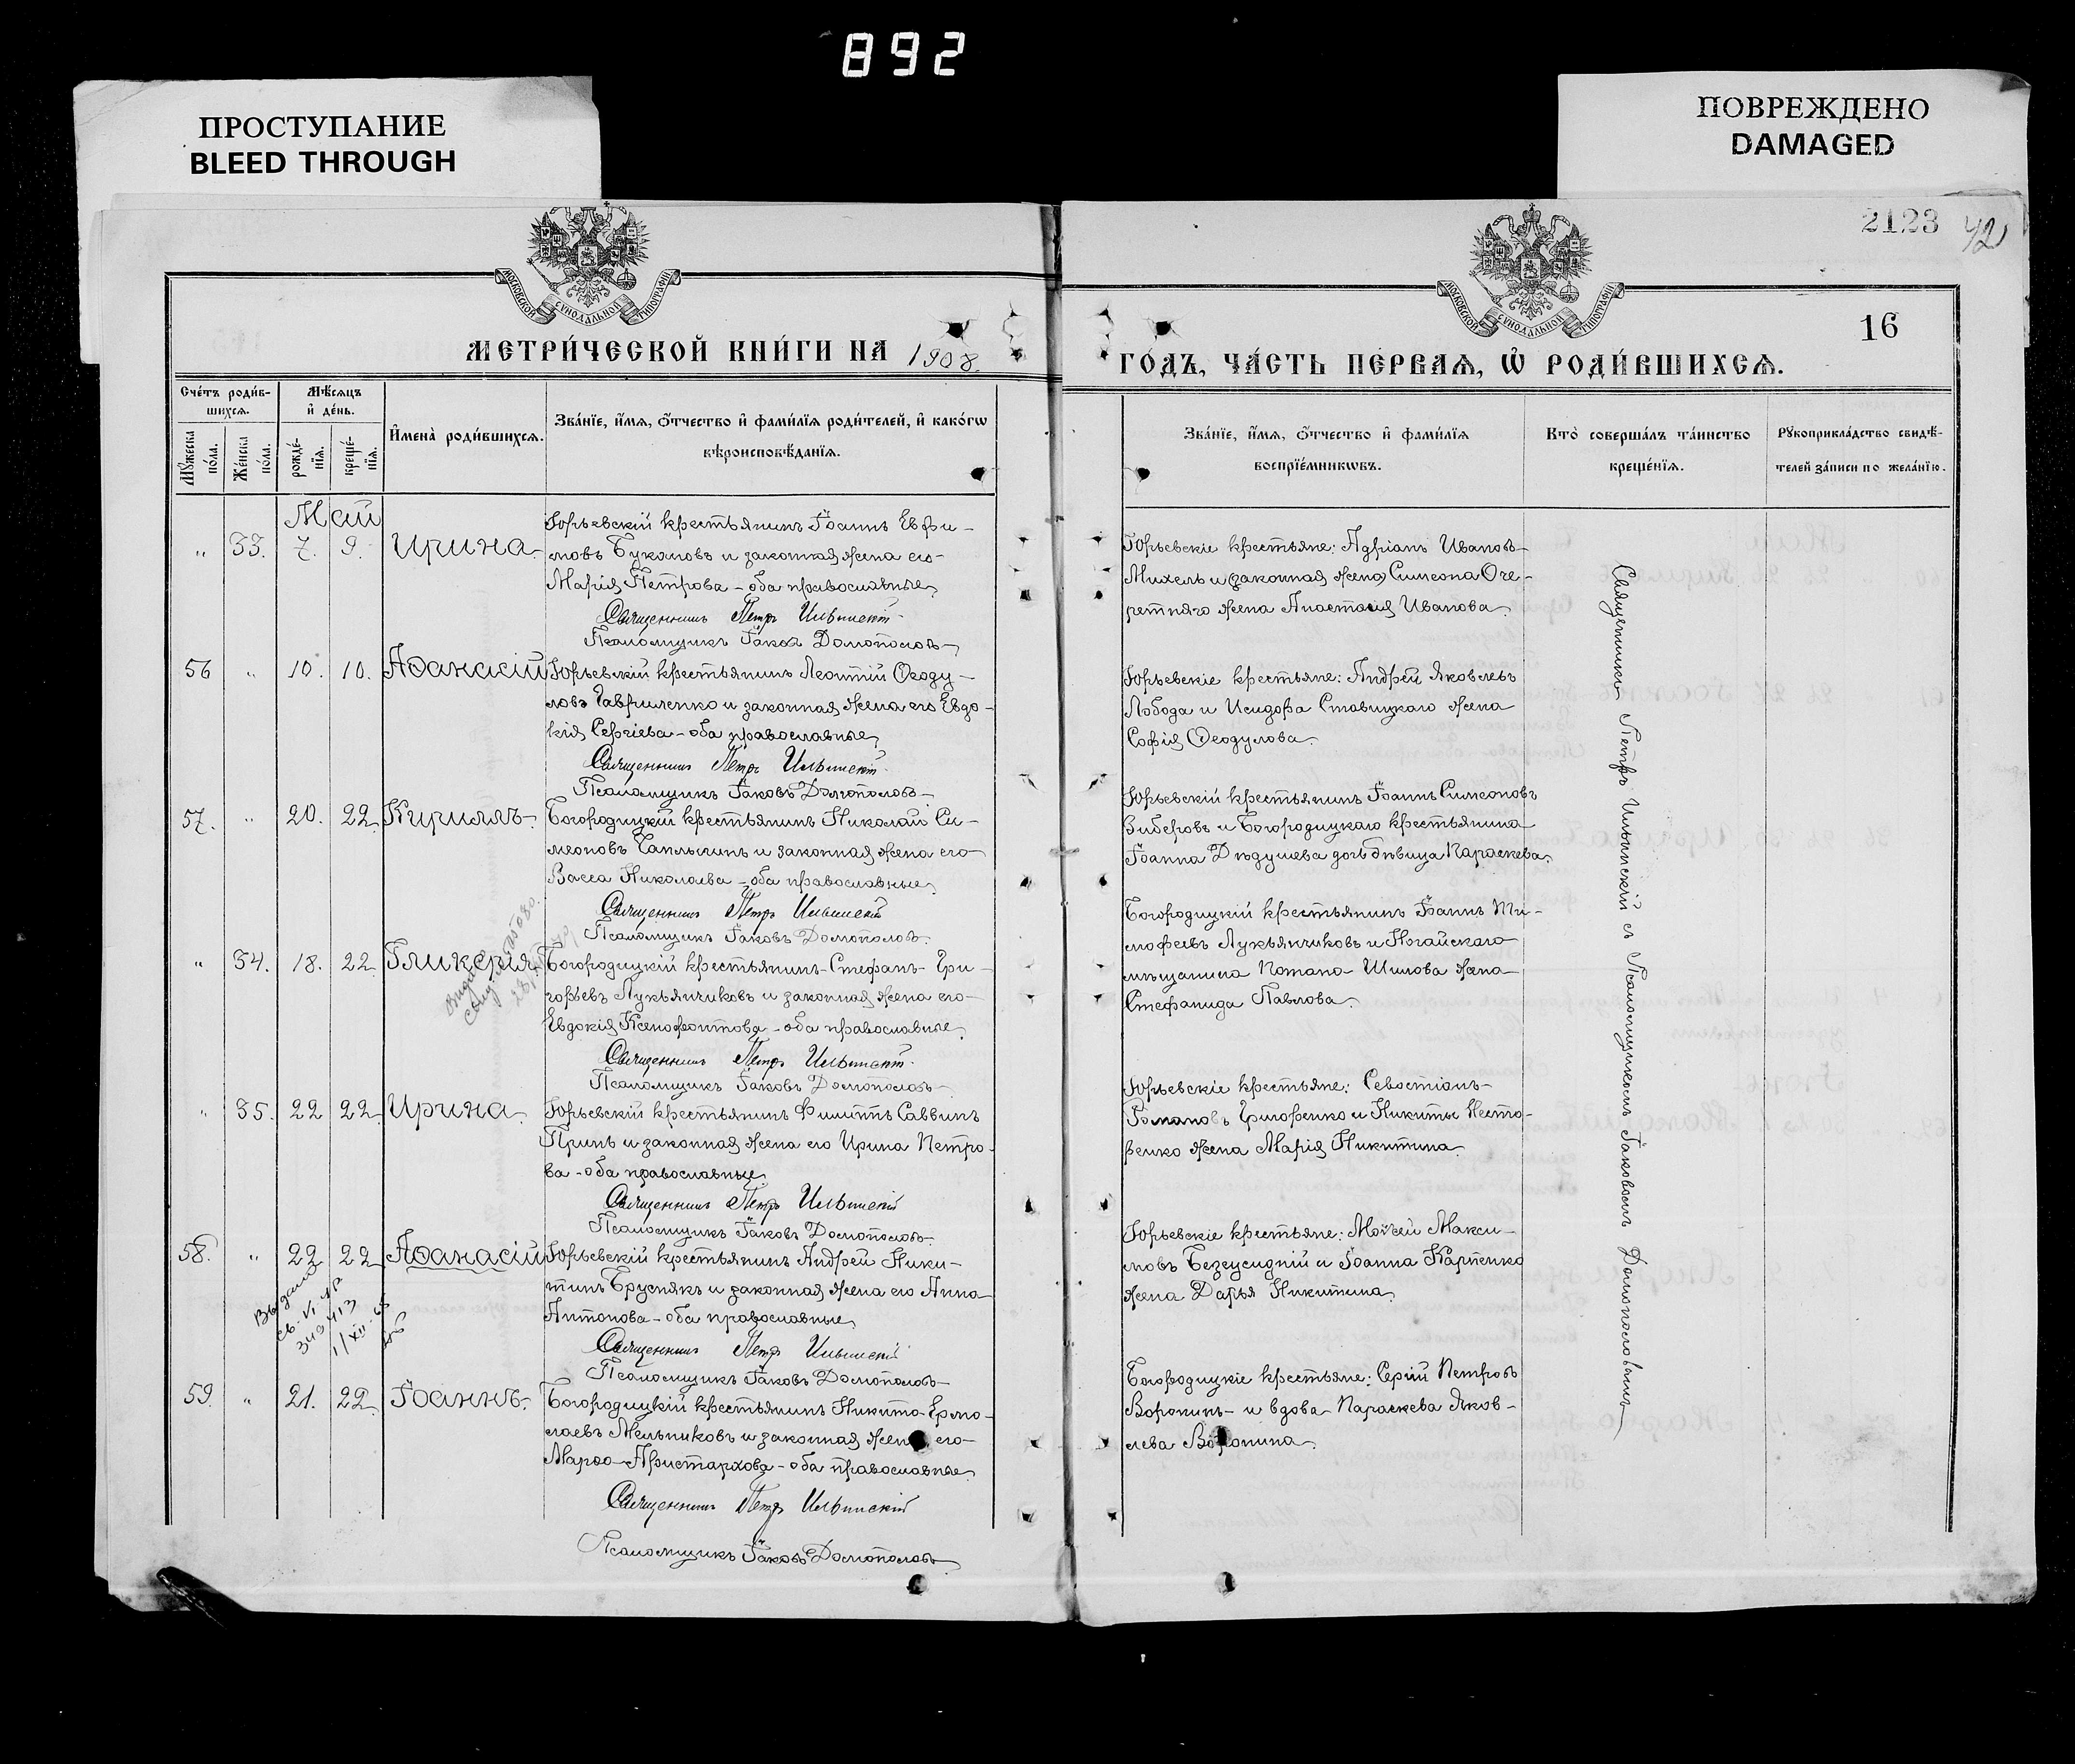 892
ПРОСТУПАНИЕ
BLEED THROUGH
ПОВРЕЖДЕНО
DAMAGED
2123 42
МОСКОВСКОЙ СУНОДАЛЬНОЙ ТИПОГРАФІИ
МОСКОВСКОЙ СУНОДАЛЬНОЙ ТИПОГРАФІИ
16
МЕТРИ́ЧЕСКОЙ КНИ́ГИ НА 1908
ГО́ДЪ, ЧА́СТЬ ПЕ́РВАѦ, Ѡ҆ РОДИ́ВШИХСѦ.
Сче́тъ роди́в-
шихсѧ.
Мѣ́сѧцъ
и҆ де́нь.
Мꙋ́жеска
по́ла.
Же́нска
по́ла.
рожде́-
нїѧ.
креще́-
нїѧ.
И҆мена̀ роди́вшихсѧ.
Зва́нїе, и҆́мѧ, ѻ҆́тчество и҆ фами́лїѧ роди́телей, и҆ како́гѡ
вѣроисповѣ́данїѧ.
Зва́нїе, и҆́мѧ, ѻ҆́тчество и҆ фами́лїѧ
воспрїе́мникѡвъ.
Кто̀ соверша́лъ та́инство
креще́нїѧ.
Рꙋкоприкла́дство свидѣ́-
телей за́писи по жела́нїю.
Май
„ 33. 7. 9. Ирина.
Юрьевскій крестьянинъ Іоаннъ Евфи-
мовъ Букановъ и законная жена его
Марія Петрова – оба православные.
Священникъ Петръ Ильинскій
Псаломщикъ Іаковъ Домополовъ
Юрьевскіе крестьяне: Адріанъ Ивановъ
Михель и законная жена Симеона Оче-
ретняго жена Анастасія Иванова.
56 „ 10. 10. Аѳанасій
Юрьевскій крестьянинъ Леонтій Ѳеоду-
ловъ Гавриленко и законная жена его Евдо-
кія Сергіева – оба православные.
Священникъ Петръ Ильинскій
Псаломщикъ Іаковъ Домополовъ
Юрьевскіе крестьяне: Андрей Яковлевъ
Лобода и Исидора Ставицкаго жена
Софія Ѳеодулова.
57. „ 20. 22. Кириллъ.
Богородицкій крестьянинъ Николай Си-
меоновъ Чаплыгинъ и законная жена его
Васса Николаева – оба православные.
Священникъ Петръ Ильинскій
Псаломщикъ Іаковъ Домополовъ.
Юрьевскій крестьянинъ Іоаннъ Симеоновъ
Зиберовъ и Богородицкаго крестьянина
Іоанна Дѣдушева дочь дѣвица Параскева.
„ 34. 18. 22. Гликерія.
Богородицкій крестьянинъ Стефанъ Гри-
горьевъ Лукьянчиковъ и законная жена его
Евдокія Ксенофонтова – оба православные.
Священникъ Петръ Ильинскій
Псаломщикъ Іаковъ Домополовъ
Богородицкій крестьянинъ Іоаннъ Ти-
мофеевъ Лукьянчиковъ и Ногайскаго
мѣщанина Потапа Шилова жена
Стефанида Павлова.
„ 35. 22 22. Ирина.
Юрьевскій крестьянинъ Филиппъ Саввинъ
Принь и законная жена его Ирина Петро-
ва – оба православные.
Священникъ Петръ Ильинскій
Псаломщикъ Іаковъ Домополовъ.
Юрьевскіе крестьяне: Севостіанъ
Романовъ Григоренко и Никиты Несте-
ренко жена Марія Никитина.
58. „ 22 22. Аѳанасій
Юрьевскій крестьянинъ Андрей Ники-
тинъ Бруснякъ и законная жена его Анна
Антонова – оба православные.
Священникъ Петръ Ильинскій
Псаломщикъ Іаковъ Домополовъ
Юрьевскіе крестьяне: Моѵсей Макси-
мовъ и Іоанна Карпенко
жена Дарья Никитина.
59. „ 21. 22. Іоаннъ.
Богородицкій крестьянинъ Никита Ермо-
лаевъ Мельниковъ и законная жена его
Марѳа Аристархова – оба православные.
Священникъ Петръ Ильинскій
Псаломщикъ Іаковъ Домополовъ
Богородицкіе крестьяне: Сергій Петровъ
Воронинъ и вдова Параскева Яков-
лева Воронина.
Священникъ Петръ Ильинскій съ Псаломщикомъ Іаковомъ